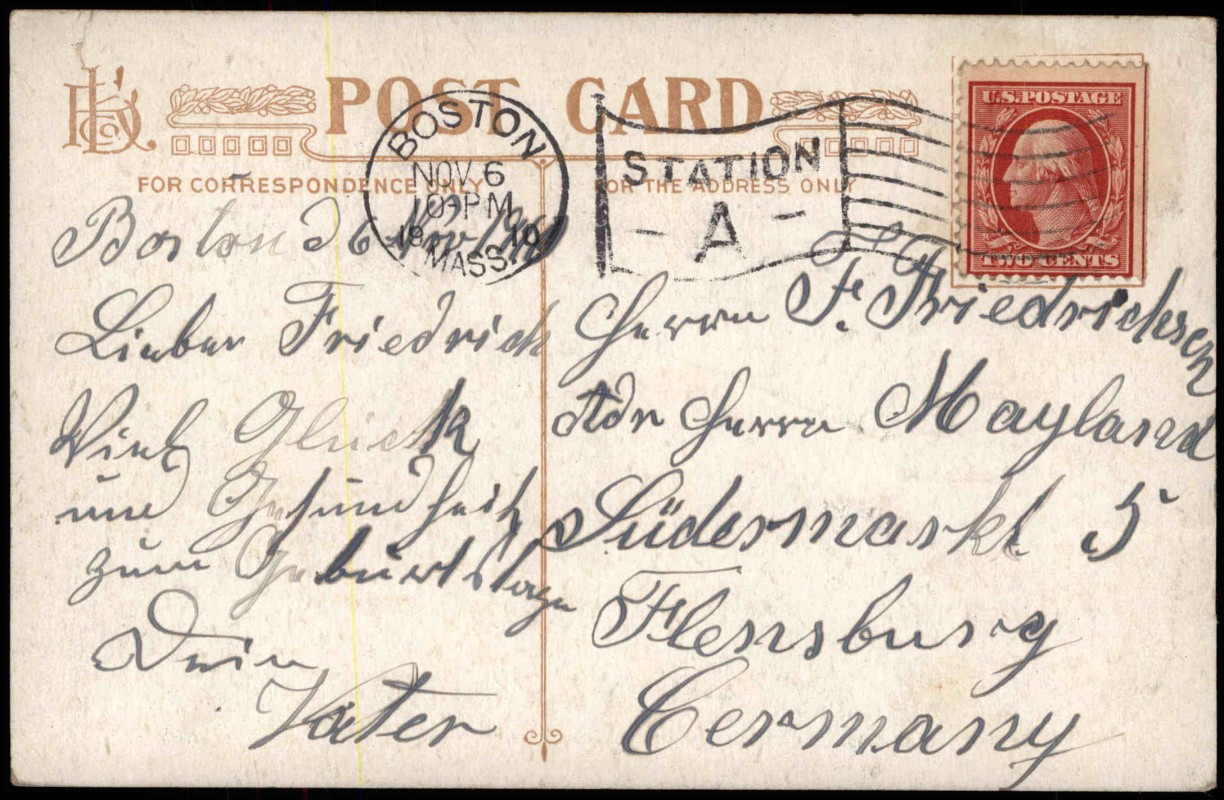 POST CARD
FOR CORRESPONDENCE ONLY
FOR THE ADDRESS ONLY
BOSTON
NOV. 6
10-PM
1910
MASS.
STATION
- A -
U.S. POSTAGE
TWO CENTS
Boston d 6 Nov
Lieber Friedrich
Viel Glück
und Gesundheit
zum Geburtstage
Dein
Vater
Herrn F. Friedrichsen
Adr Herrn Mayland
Südermarkt 5
Flensburg
Germany